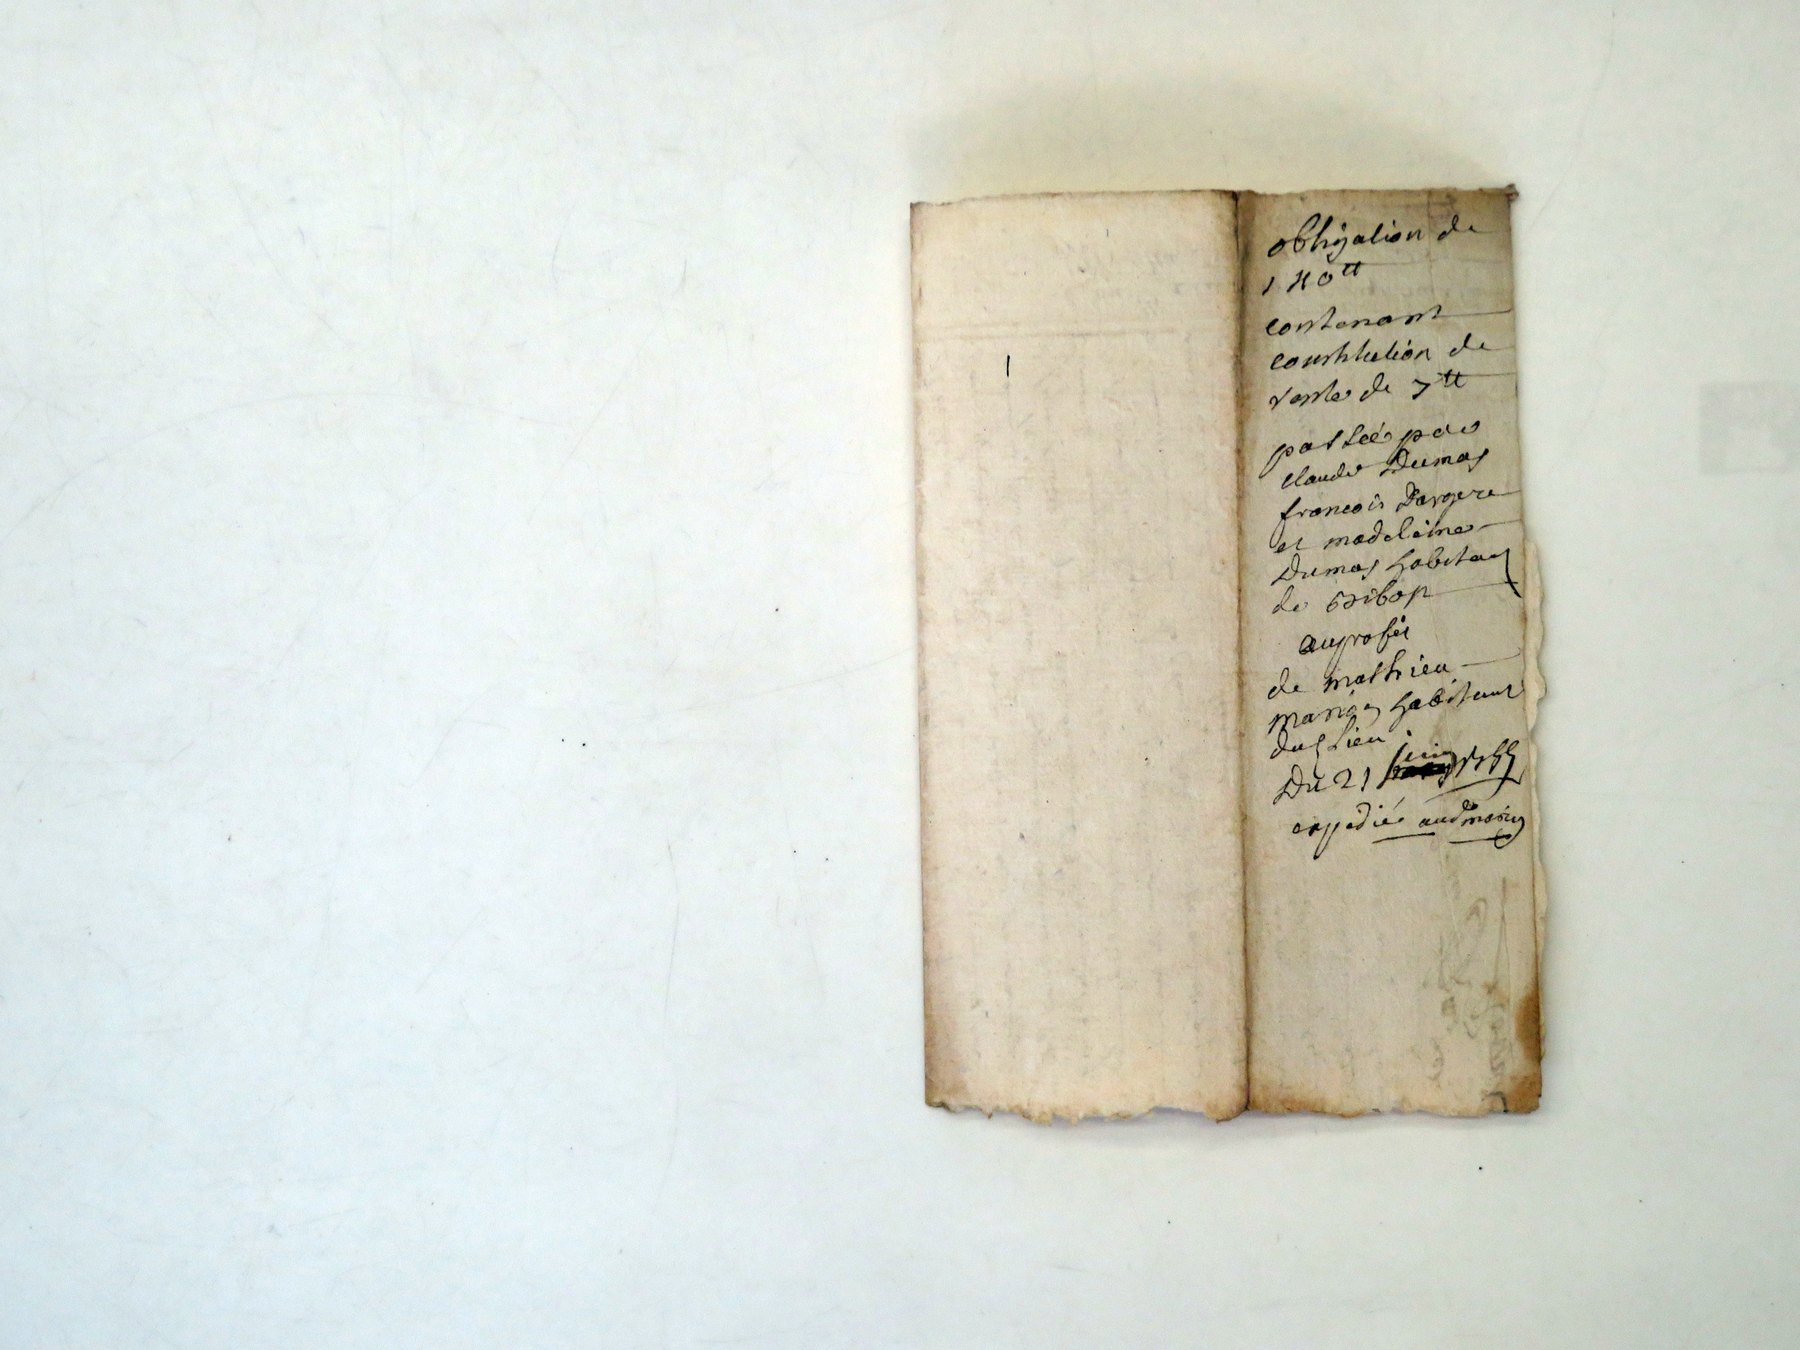 obligation de
140ᵗᵗ
contenant
constitution de
rente de 7ᵗᵗ
passée par
claude Dumas
francois Dargere
et madeleine
Dumas habitans
de
au profit
de mathieu
marion habitant
dud lieu
Du 21 juin
expediée aud marion